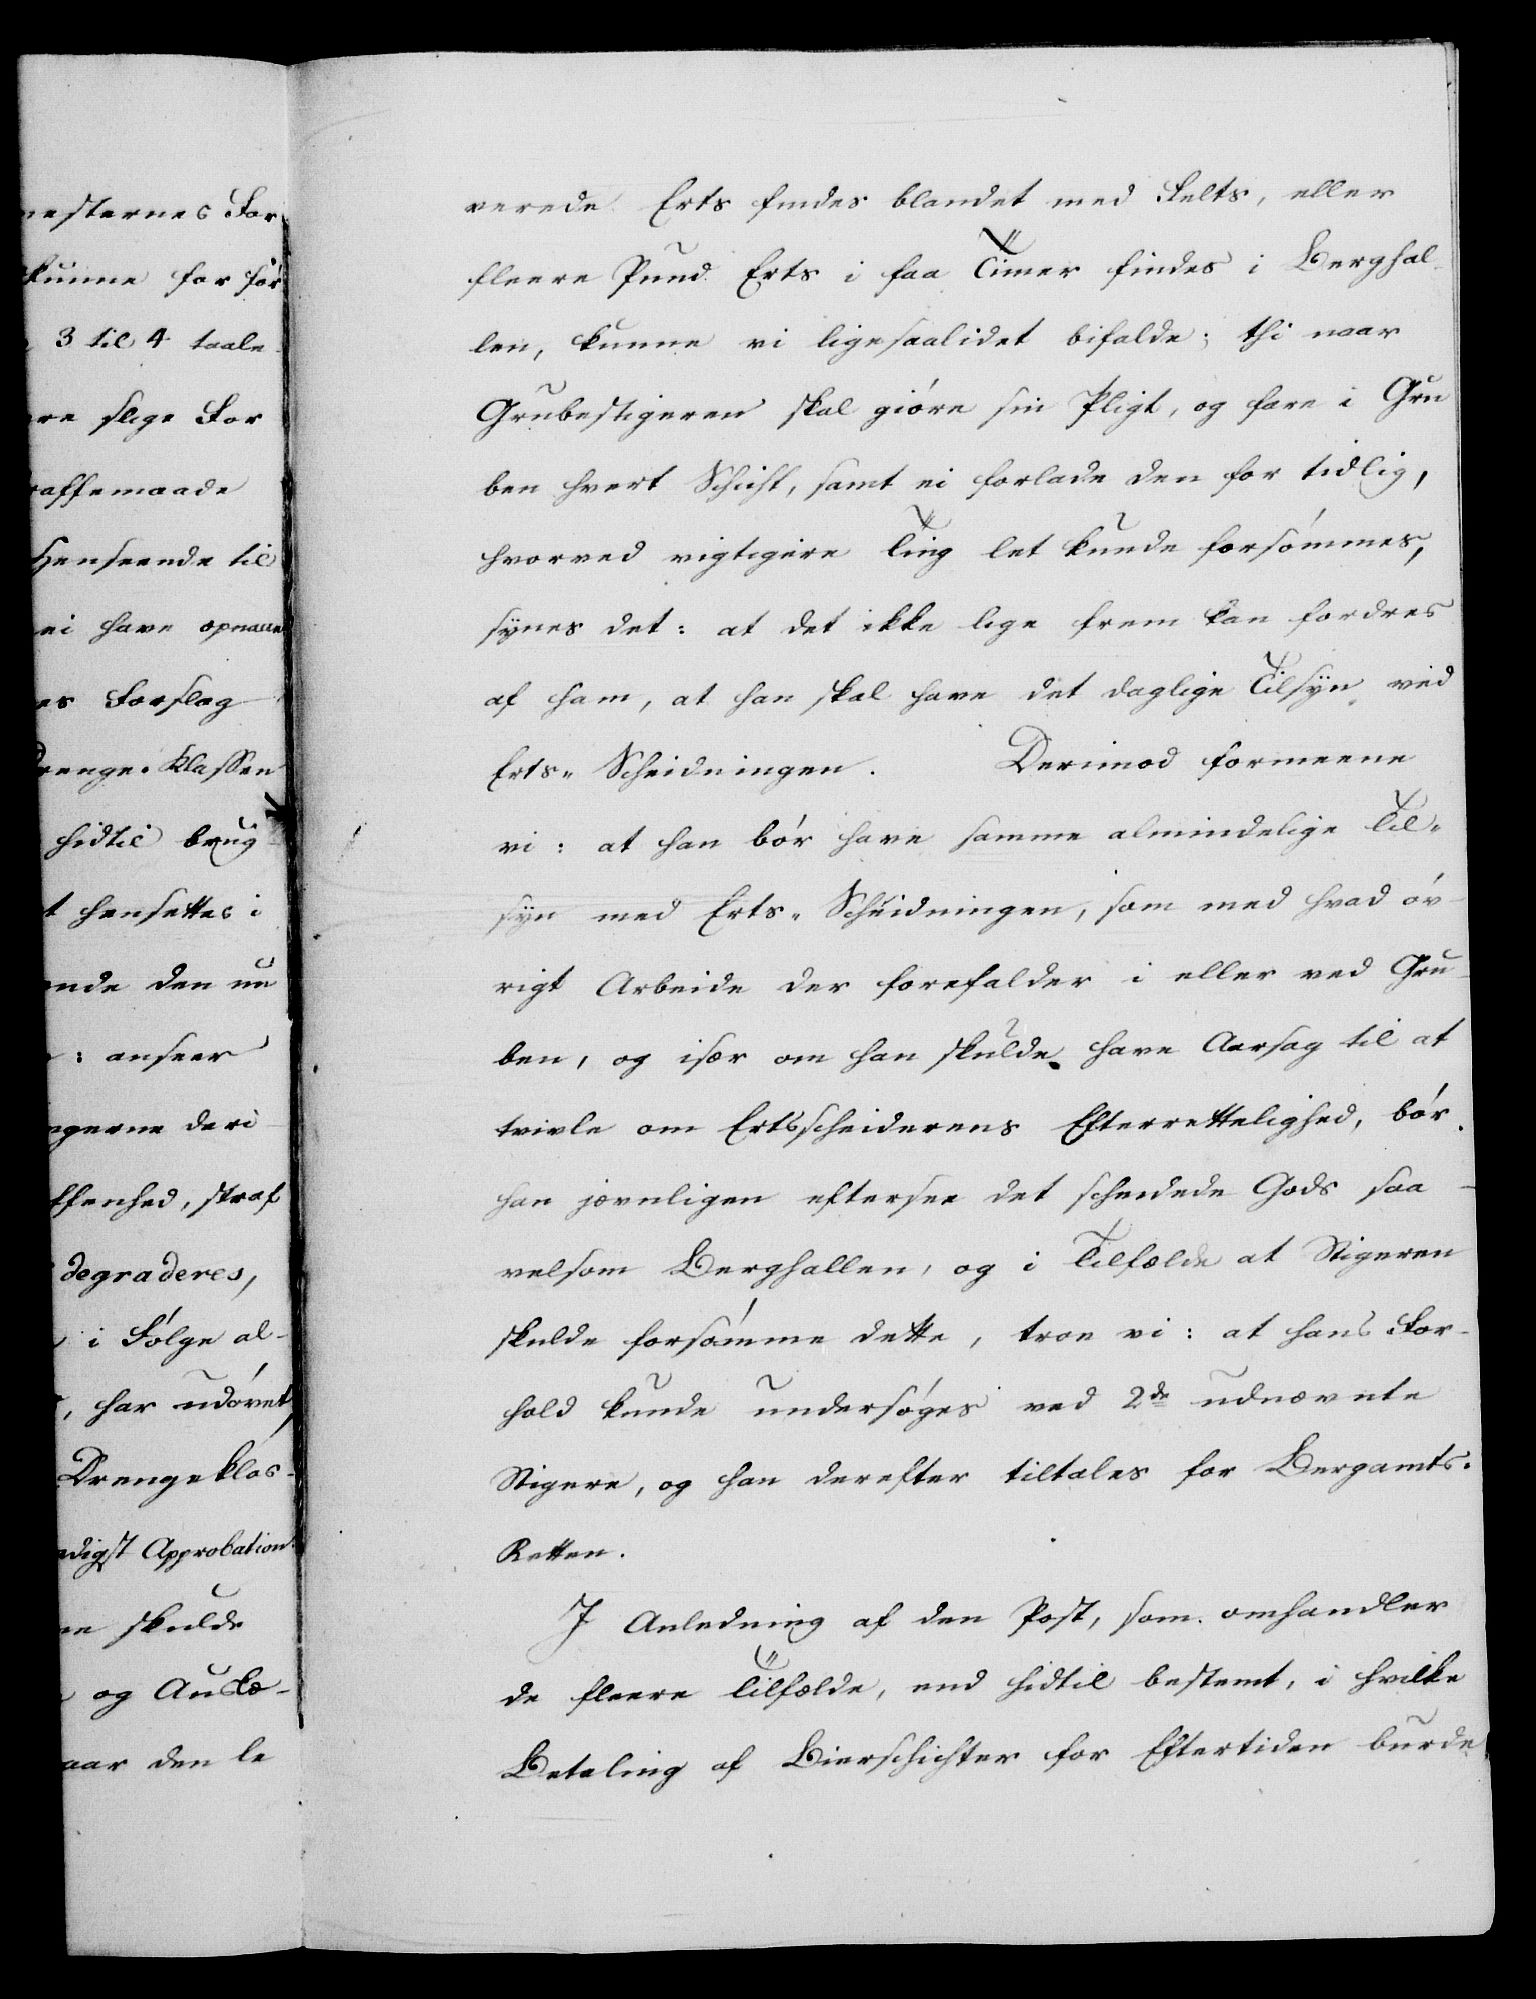 nesternes For
kunne for før
3 til 4 taale
re slige For
raffemaade
Henseende til
ei have opnaaet
es Forslag
Drenge-Klassen
hidtil brug
t hensættes i
ende den nu
: anseer
ngerne deri
ffenhed, straf
degraderes,
i Følge al-
, har udøvet
Drengeklas-
digst Approbation
ne skulde
og Auskæ-
aar den le
verede Erts findes blandet med Felts, eller
fleere Pund Erts i faa Timer findes i Berghal-
len, kunne vi ligesaalidet bifalde; thi naar
Grubestigeren skal giøre sin Pligt, og fare i Gru
ben hvert Schicht, samt ei forlade den for tidlig,
hvorved vigtigere Ting let kunde forsømmes,
synes det: at det ikke lige frem kan fordres
af ham, at han skal have det daglige Tilsyn ved
Erts-Scheidningen. Derimod formeene
vi: at han bør have samme almindelige Til-
syn med Erts-Scheidningen, som med hvad øv-
rigt Arbeide der forefalder i eller ved Gru-
ben, og især om han skulde have Aarsag til at
tvivle om Ertsscheiderens Efterrettelighed, bør
han jævnligen eftersee det scheidede Gods saa-
velsom Berghallen, og i Tilfælde at Stigeren
skulde forsømme dette, troe vi: at hans For-
hold kunde undersøges ved 2de udnævnte
Stigere, og han derefter tiltales for Bergamts-
Retten.
I Anledning af den Post, som omhandler
de fleere Tilfælde, end hidtil bestemt, i hvilke
Betaling af Bierschichter for Eftertiden burde